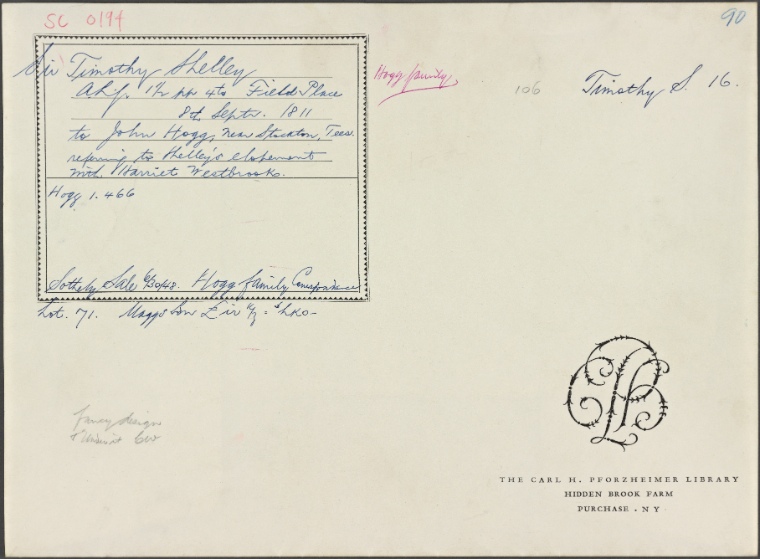 SC 0194
90
Sir Timothy Shelley
A.L.S. 1½ pp 4to Field Place
8th Septr. 1811
to John Hogg, near Stockton, Tees.
referring to Shelley's elopement
with Harriet Westbrook.
Hogg 1. 466
Sotheby Sale 6/30/48. Hogg family Correspondence
Lot. 71. Maggs Son
Hogg family
106
Timothy S. 16.
fancy design
THE CARL H. PFORZHEIMER LIBRARY
HIDDEN BROOK FARM
PURCHASE . NY